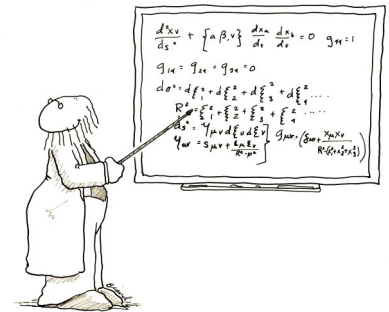 d²xν/ds² + {αβ,ν} dxa/ds dxb/ds = 0 g44 = 1
g14 = g24 = g34 = 0
dσ² = dξ²1 + dξ²2 + dξ²3 + dξ²4 .....
R² = ξ²1 + ξ²2 + ξ²3 + ξ²4 ....
ds² = γμν dξμ dξν } gμν = (δμν + xμxν/R²-(x²1+x²2+x²3)
γμν = δμν + ξμξν/R²-ρ²